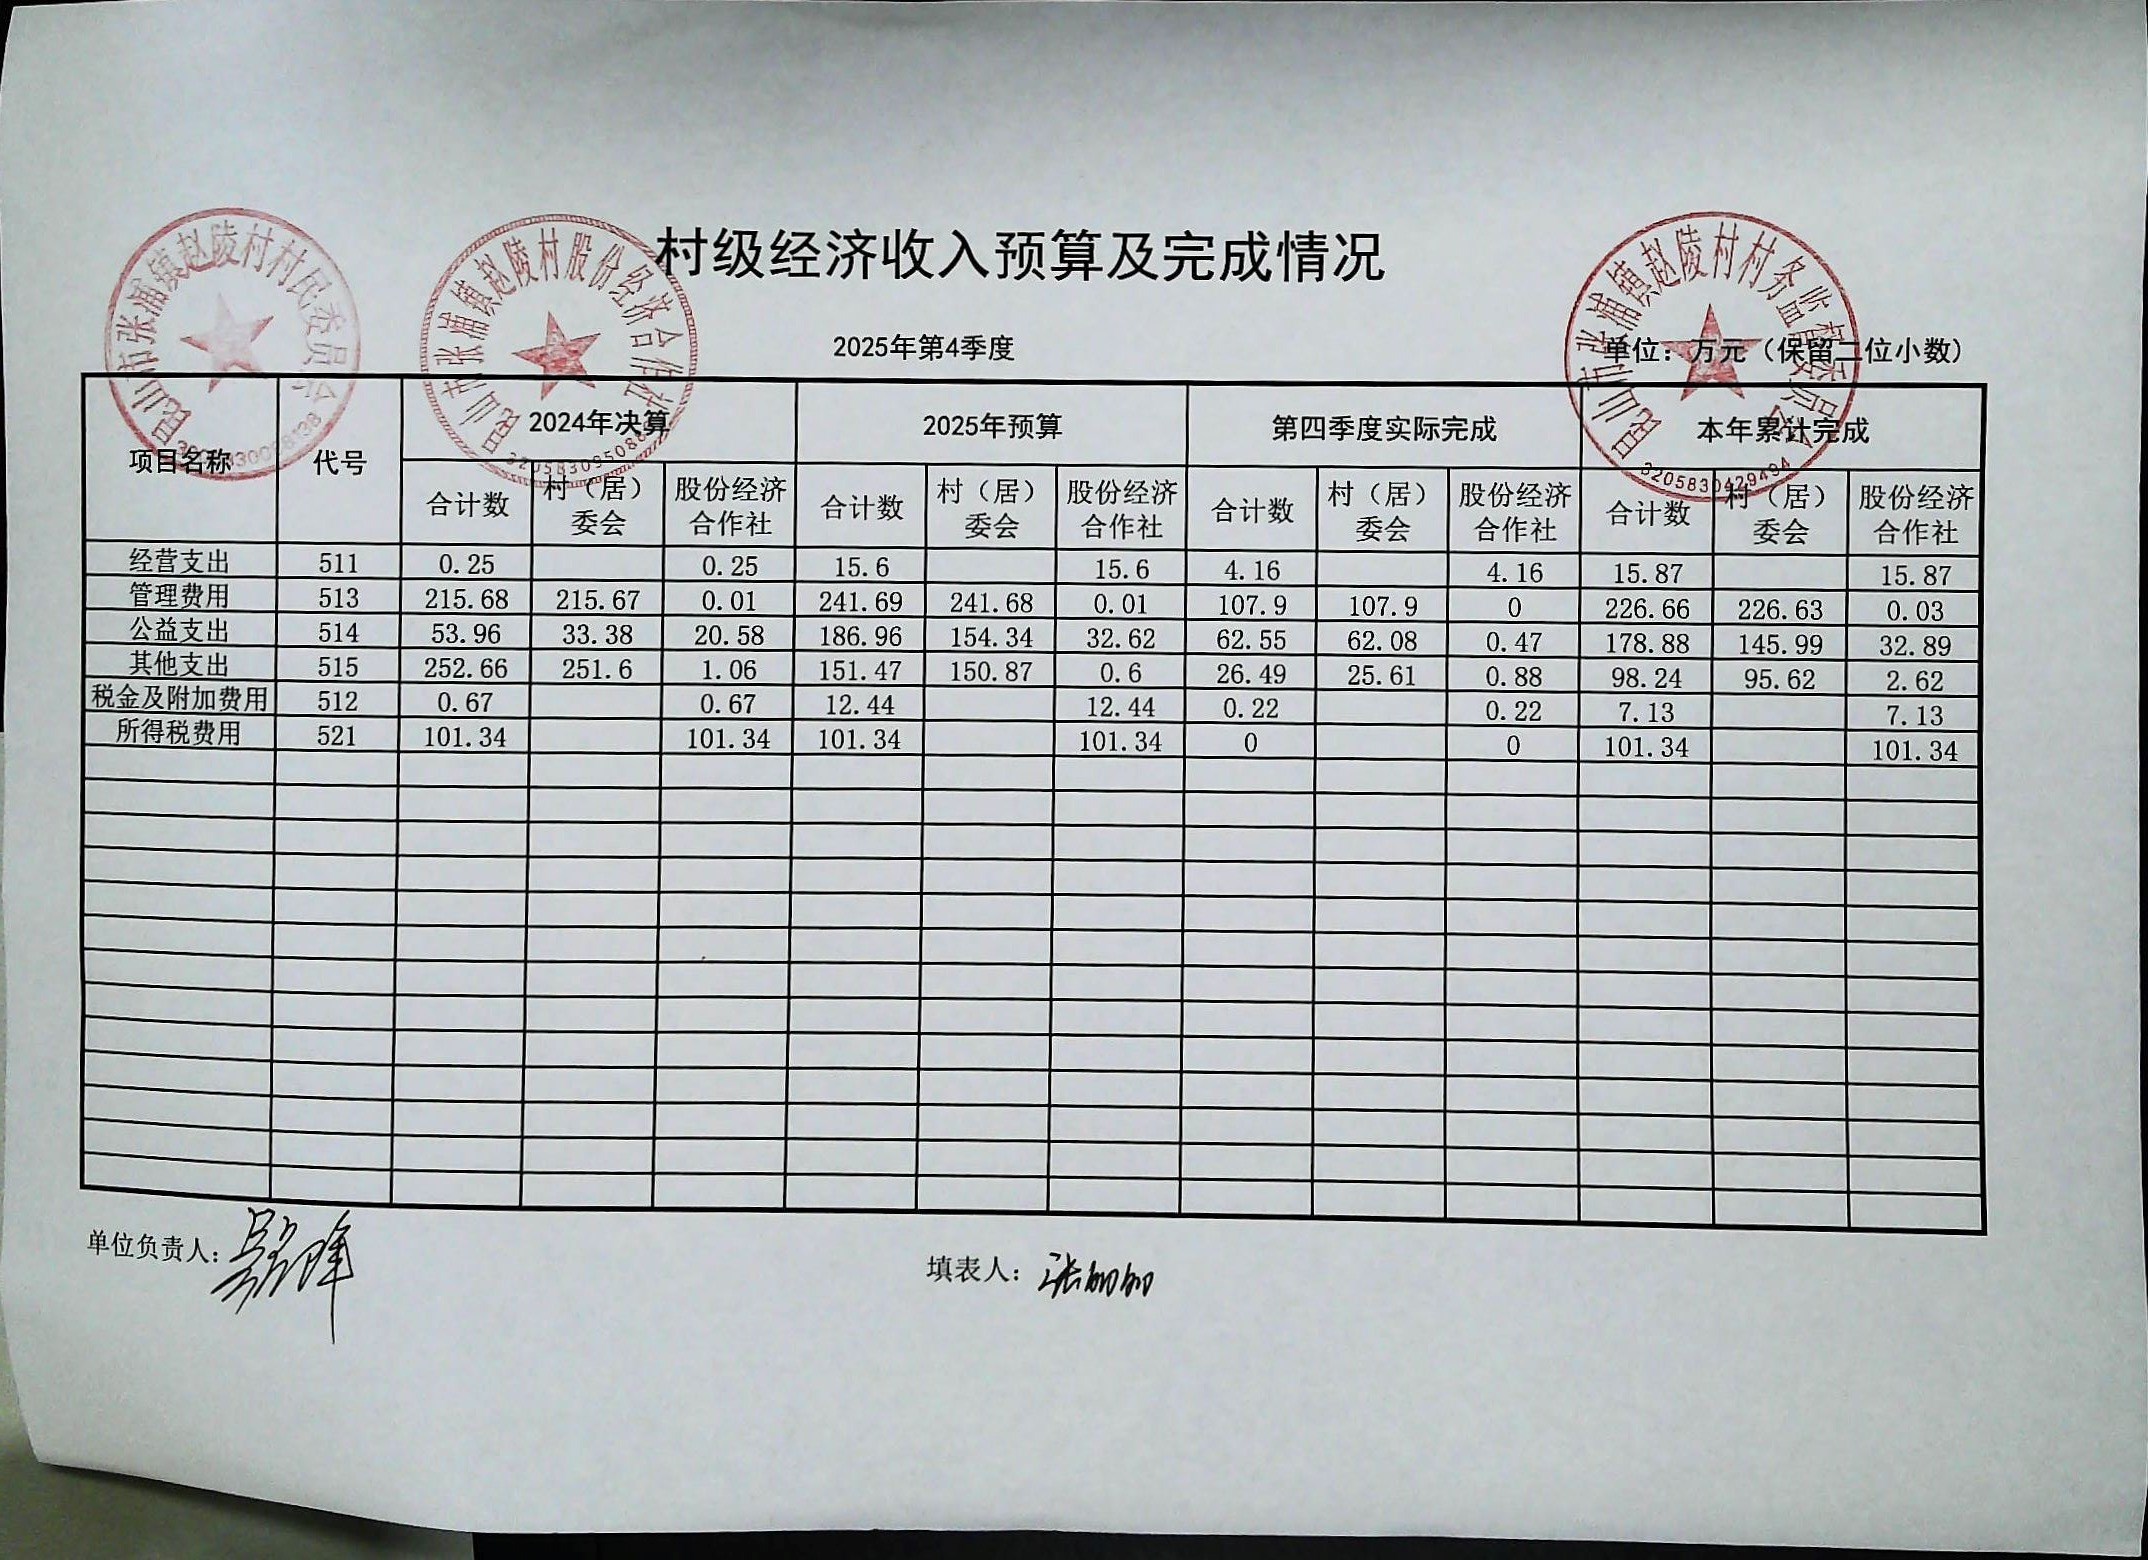 昆山市张浦镇赵陵村村民委员会
昆山市张浦镇赵陵村股份经济合作社
昆山市张浦镇赵陵村村务监督委员会
3205830429494
村级经济收入预算及完成情况
2025年第4季度
单位：万元（保留二位小数）
项目名称 代号 2024年决算 2025年预算 第四季度实际完成 本年累计完成
合计数 村（居）委会 股份经济合作社 合计数 村（居）委会 股份经济合作社 合计数 村（居）委会 股份经济合作社 合计数 村（居）委会 股份经济合作社
经营支出 511 0.25 0.25 15.6 15.6 4.16 4.16 15.87 15.87
管理费用 513 215.68 215.67 0.01 241.69 241.68 0.01 107.9 107.9 0 226.66 226.63 0.03
公益支出 514 53.96 33.38 20.58 186.96 154.34 32.62 62.55 62.08 0.47 178.88 145.99 32.89
其他支出 515 252.66 251.6 1.06 151.47 150.87 0.6 26.49 25.61 0.88 98.24 95.62 2.62
税金及附加费用 512 0.67 0.67 12.44 12.44 0.22 0.22 7.13 7.13
所得税费用 521 101.34 101.34 101.34 101.34 0 0 101.34 101.34
单位负责人：
填表人：张丽丽